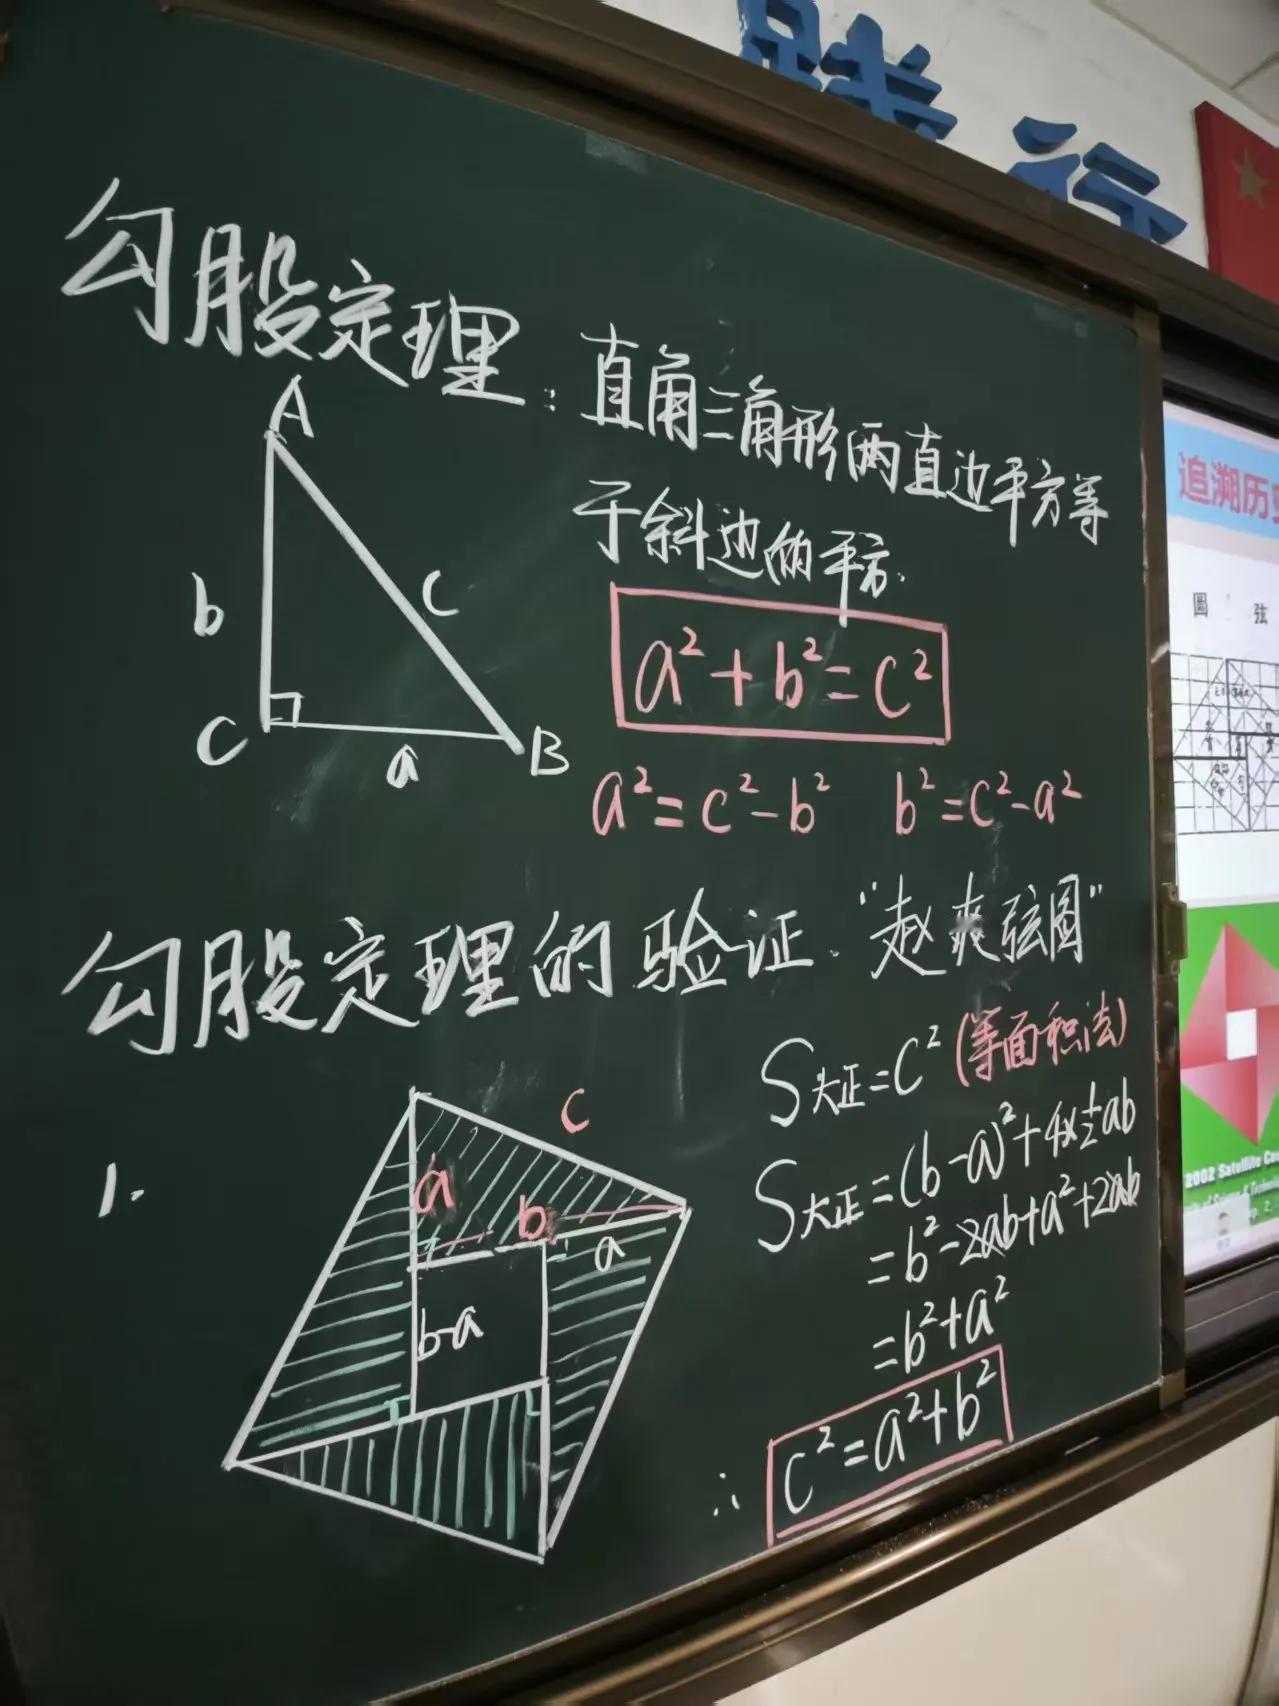 践行
勾股定理：直角三角形两直边平方等
于斜边的平方.
A
b
c
C
a
B
a²+b²=c²
a²=c²-b² b²=c²-a²
勾股定理的验证."赵爽弦图"
1.
c
a
b
a
b-a
S大正=c²(等面积法)
S大正=(b-a)²+4×½ab
=b²-2ab+a²+2ab
=b²+a²
∴ c²=a²+b²
追溯历史
圆 弦
2002 Satellite Co